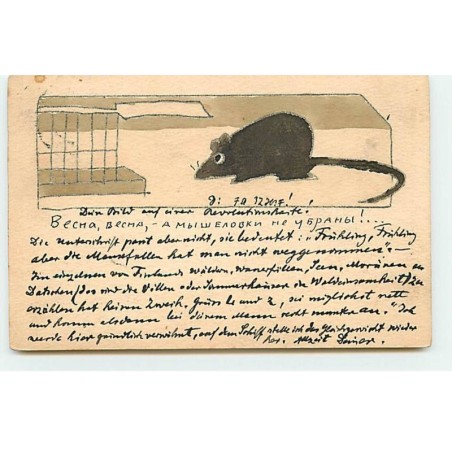 Dein Bild auf einer Revolutionskarte!
Весна, весна, - а мышеловки не убраны!...
Die Unterschrift passt aber nicht, sie bedeutet: "Frühling, Frühling
aber die Mausefallen hat man nicht weggenommen".
Im einzelnen von Finlands Wäldern, Wasserfällen, Seen, Moränen
Datschen (das sind die Villen oder Sommerhäuser der Waldeinsamkeit) zu
erzählen hat keinen Zweck. Grüss und sei möglichst nett
und komm alsdann bei deinem Mann nicht an. Ich
werde hier gründlich verwöhnt, auf dem Schiff stellt sich das Gleichgewicht wieder
her. Allzeit Deiner.